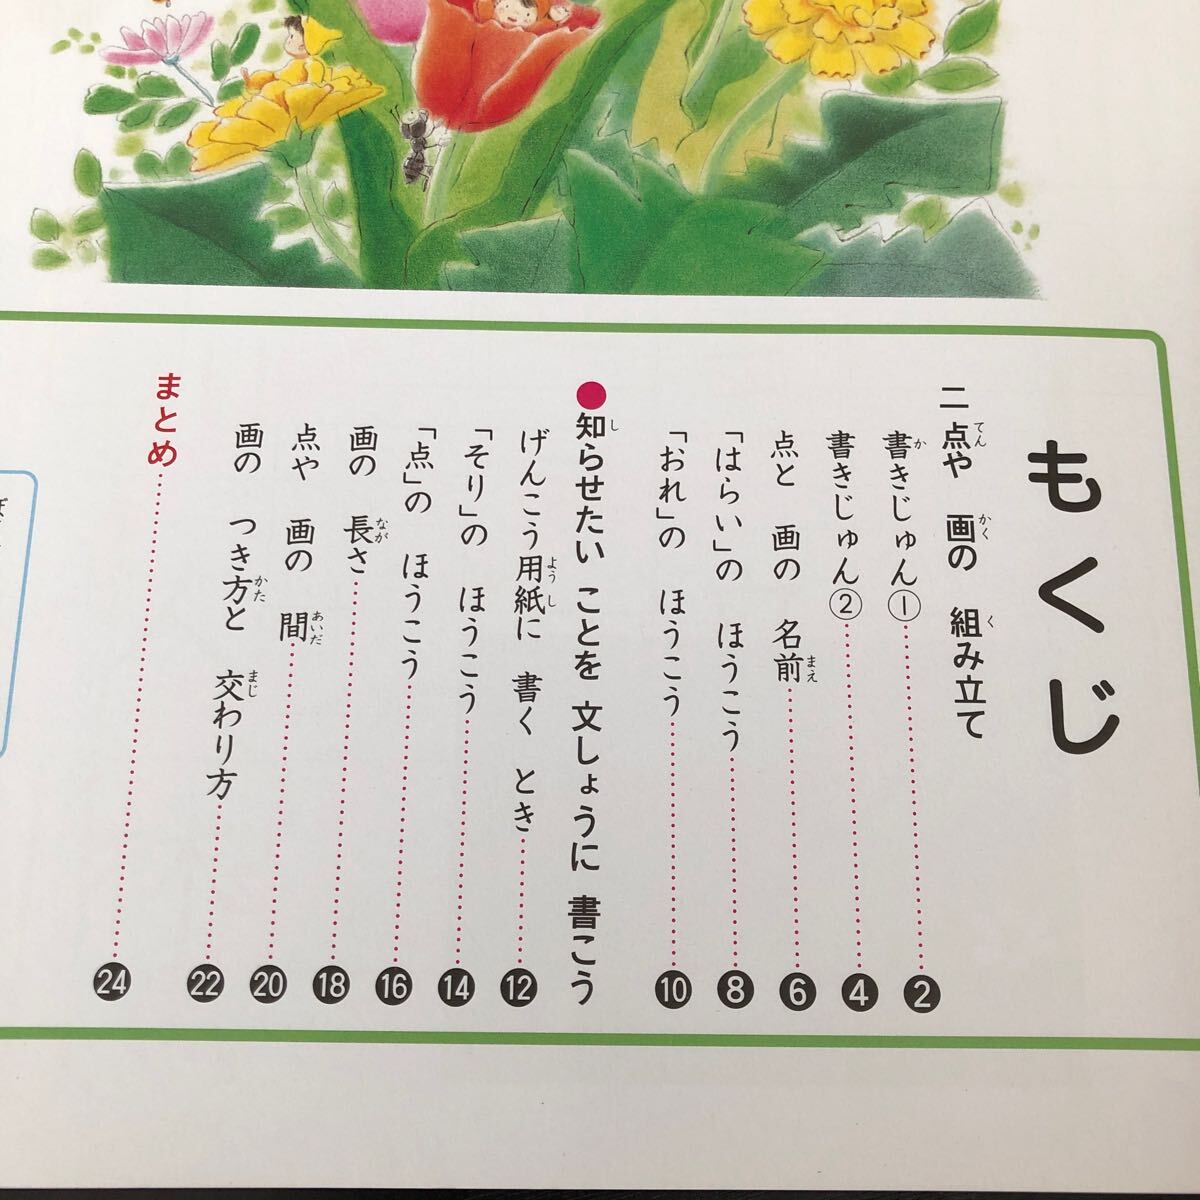 もくじ
一 点や 画の 組み立て
てん かく く
書きじゅん① 2
か
書きじゅん② 4
点と 画の 名前 6
まえ
「はらい」の ほうこう 8
「おれ」の ほうこう 10
●知らせたい ことを 文しょうに 書こう
し
げんこう用紙に 書く とき 12
ようし
「そり」の ほうこう 14
「点」の ほうこう 16
画の 長さ 18
なが
点や 画の 間 20
あいだ
画の つき方と 交わり方 22
かた まじ
まとめ 24